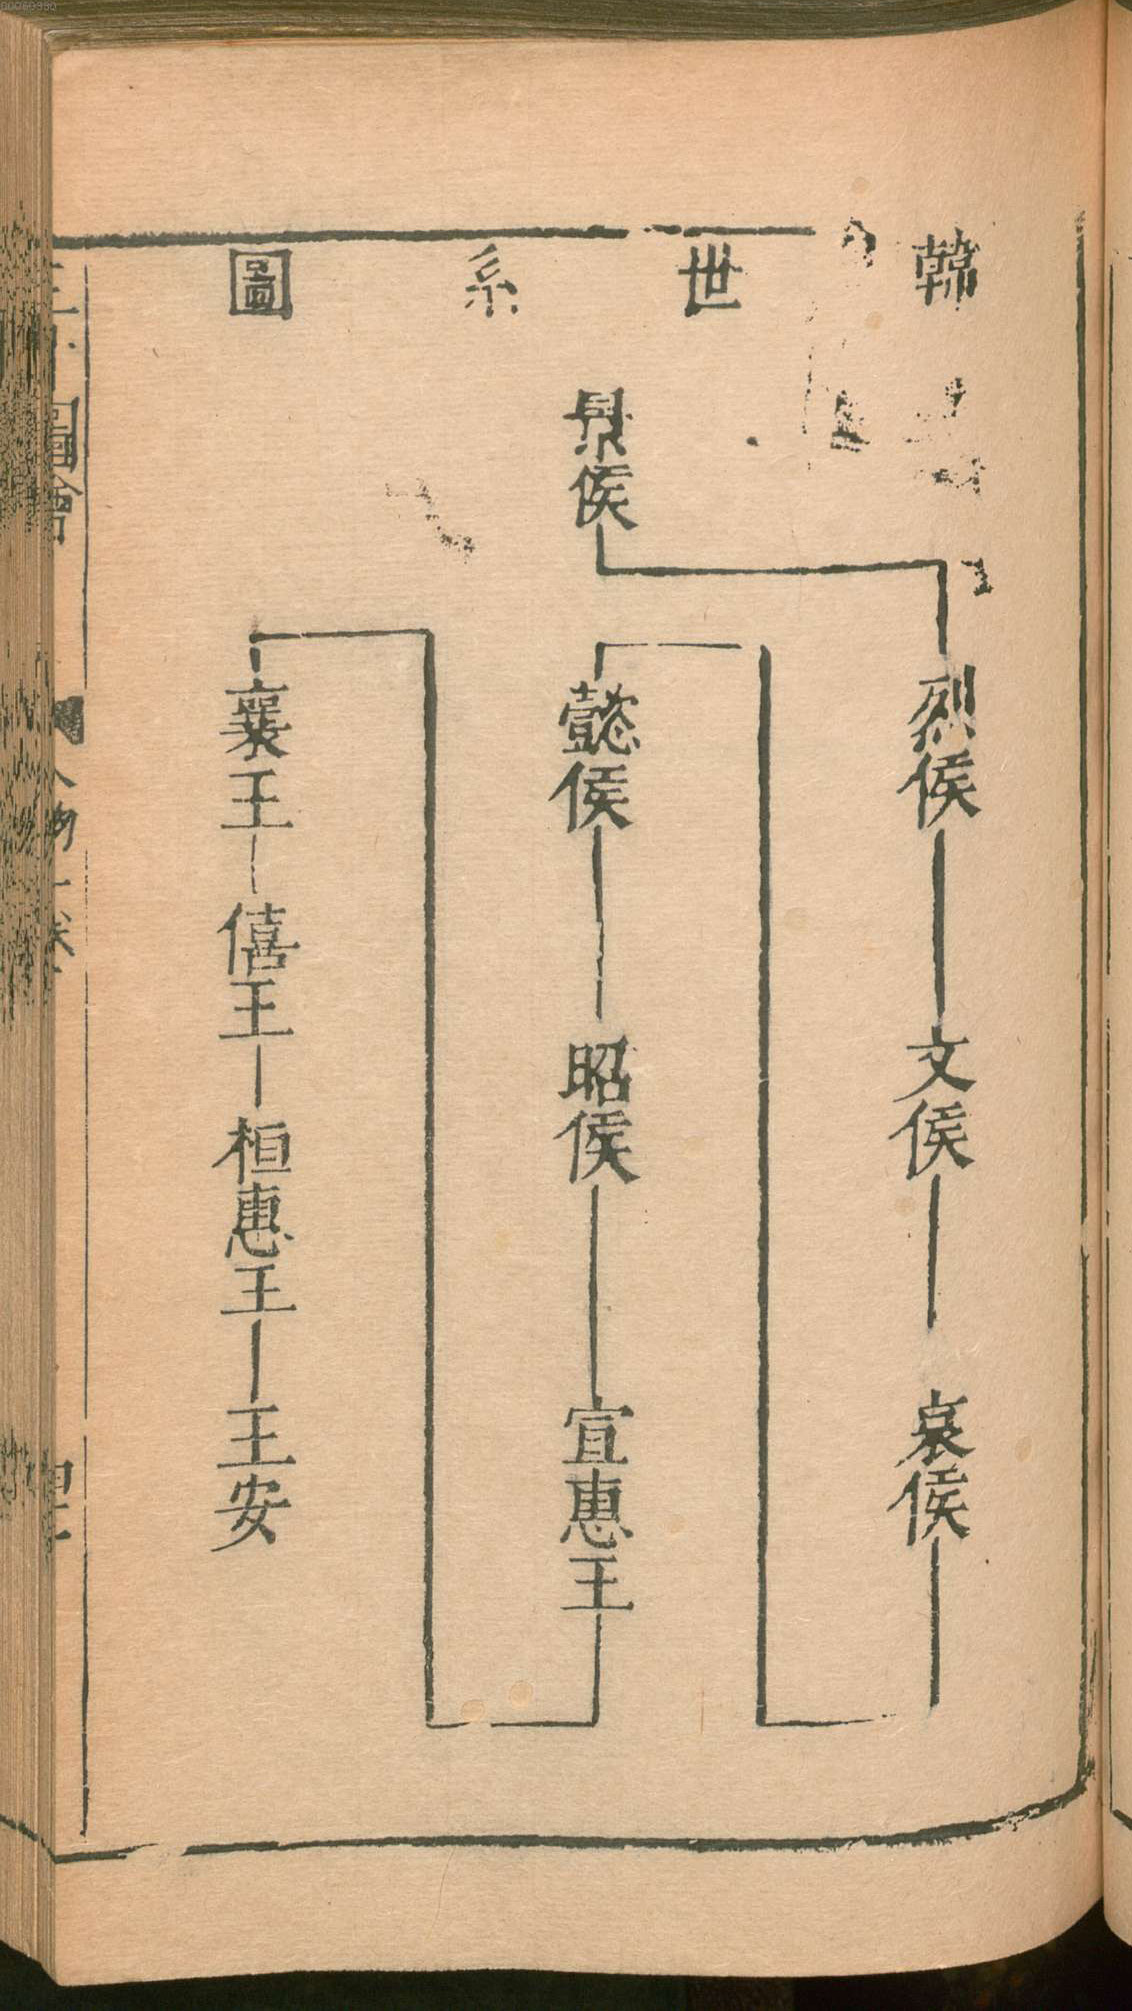 韓世系圖
景侯
烈侯
文侯
哀侯
懿侯
昭侯
宣惠王
襄王
僖王
桓惠王
王安
圖會
00060330